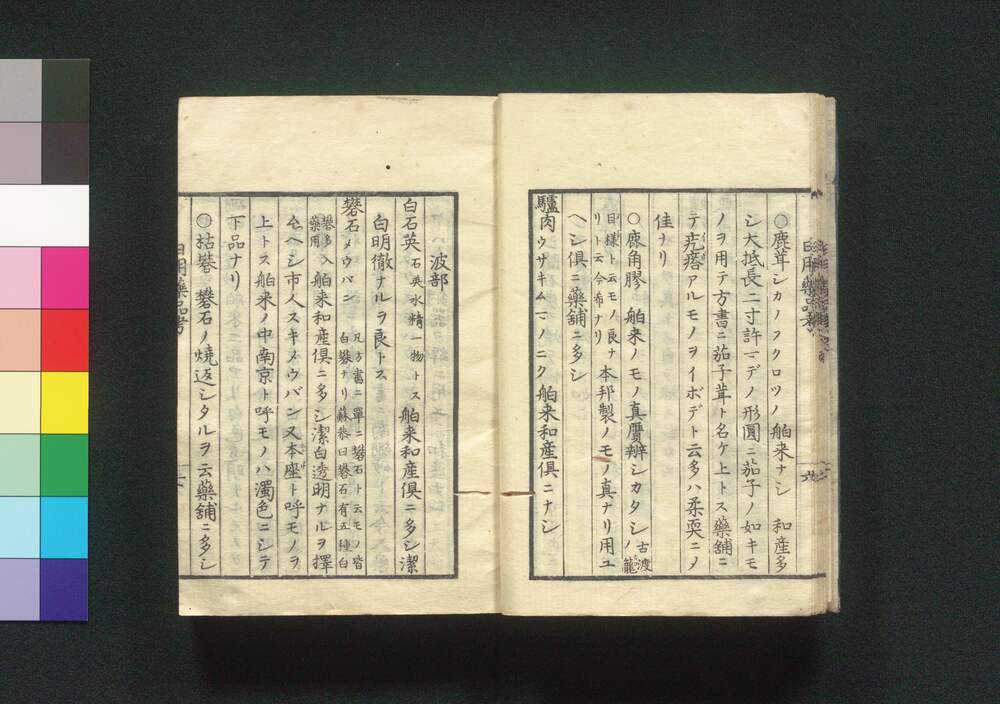 ○鹿茸シカノフクロツノ舶来ナシ 和産多
シ大抵長二寸許マデノ形圓ニ茄子ノ如キモ
ノヲ用テ方書ニ茄子茸ト名ケ上トス藥舗ニ
テ疙瘩アルモノヲイボデト云多ハ柔耎ニメ
佳ナリ
○鹿角膠 舶来ノモノ真贋辨シカタシ古渡ノ龍
目様ト云モノ良ナリト云今希ナリ 本邦製ノモノ真ナリ用ユ
ヘシ俱ニ藥舗ニ多シ
驢肉ウサキムマノニク 舶来和産俱ニナシ
日用藥品考
波部
白石英 石英水精一物トス 舶来和産俱ニ多シ潔
白明徹ナルヲ良トス
礬石メウバン 凡方書ニ單ニ礬石ト云モノ皆白礬ナリ蘇恭曰礬石有五種白
礬多入藥用 舶来和産俱ニ多シ潔白透明ナルヲ擇
ムヘシ市人スキメウバン又本座ト呼モノヲ
上トス舶来ノ中南京ト呼モノハ濁色ニシテ
下品ナリ
○枯礬 礬石ノ燒返シタルヲ云藥舗ニ多シ
日用藥品考